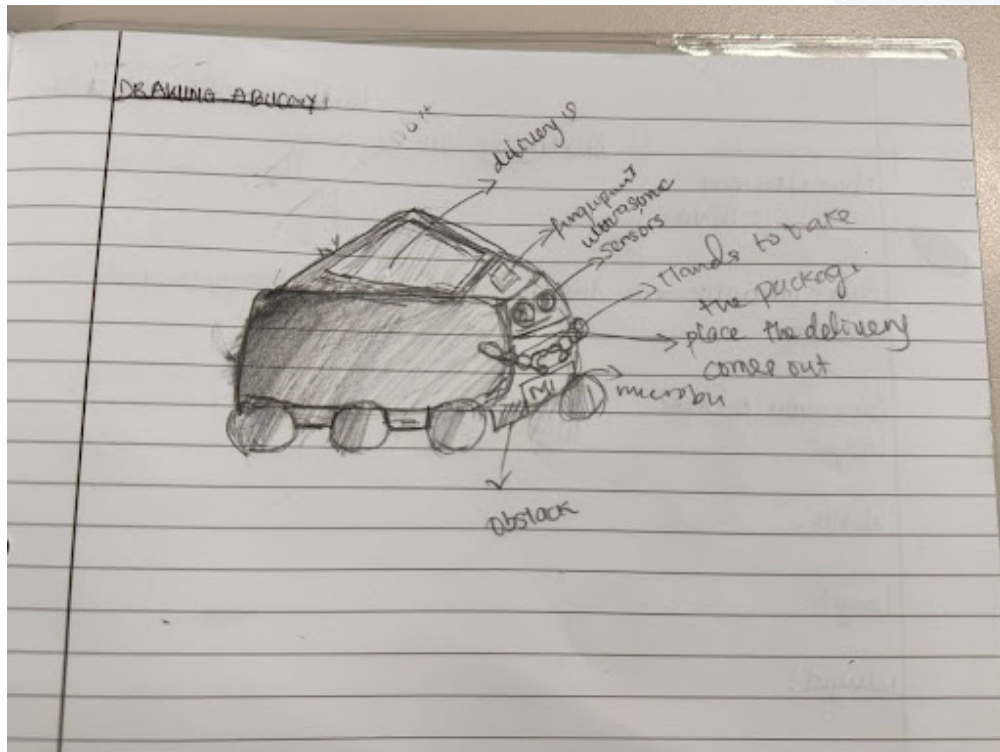 delivery is
fingerprint
ultrasonic
sensors
Hands to take
the package
place the delivery
comes out
MI
microbu
obstack